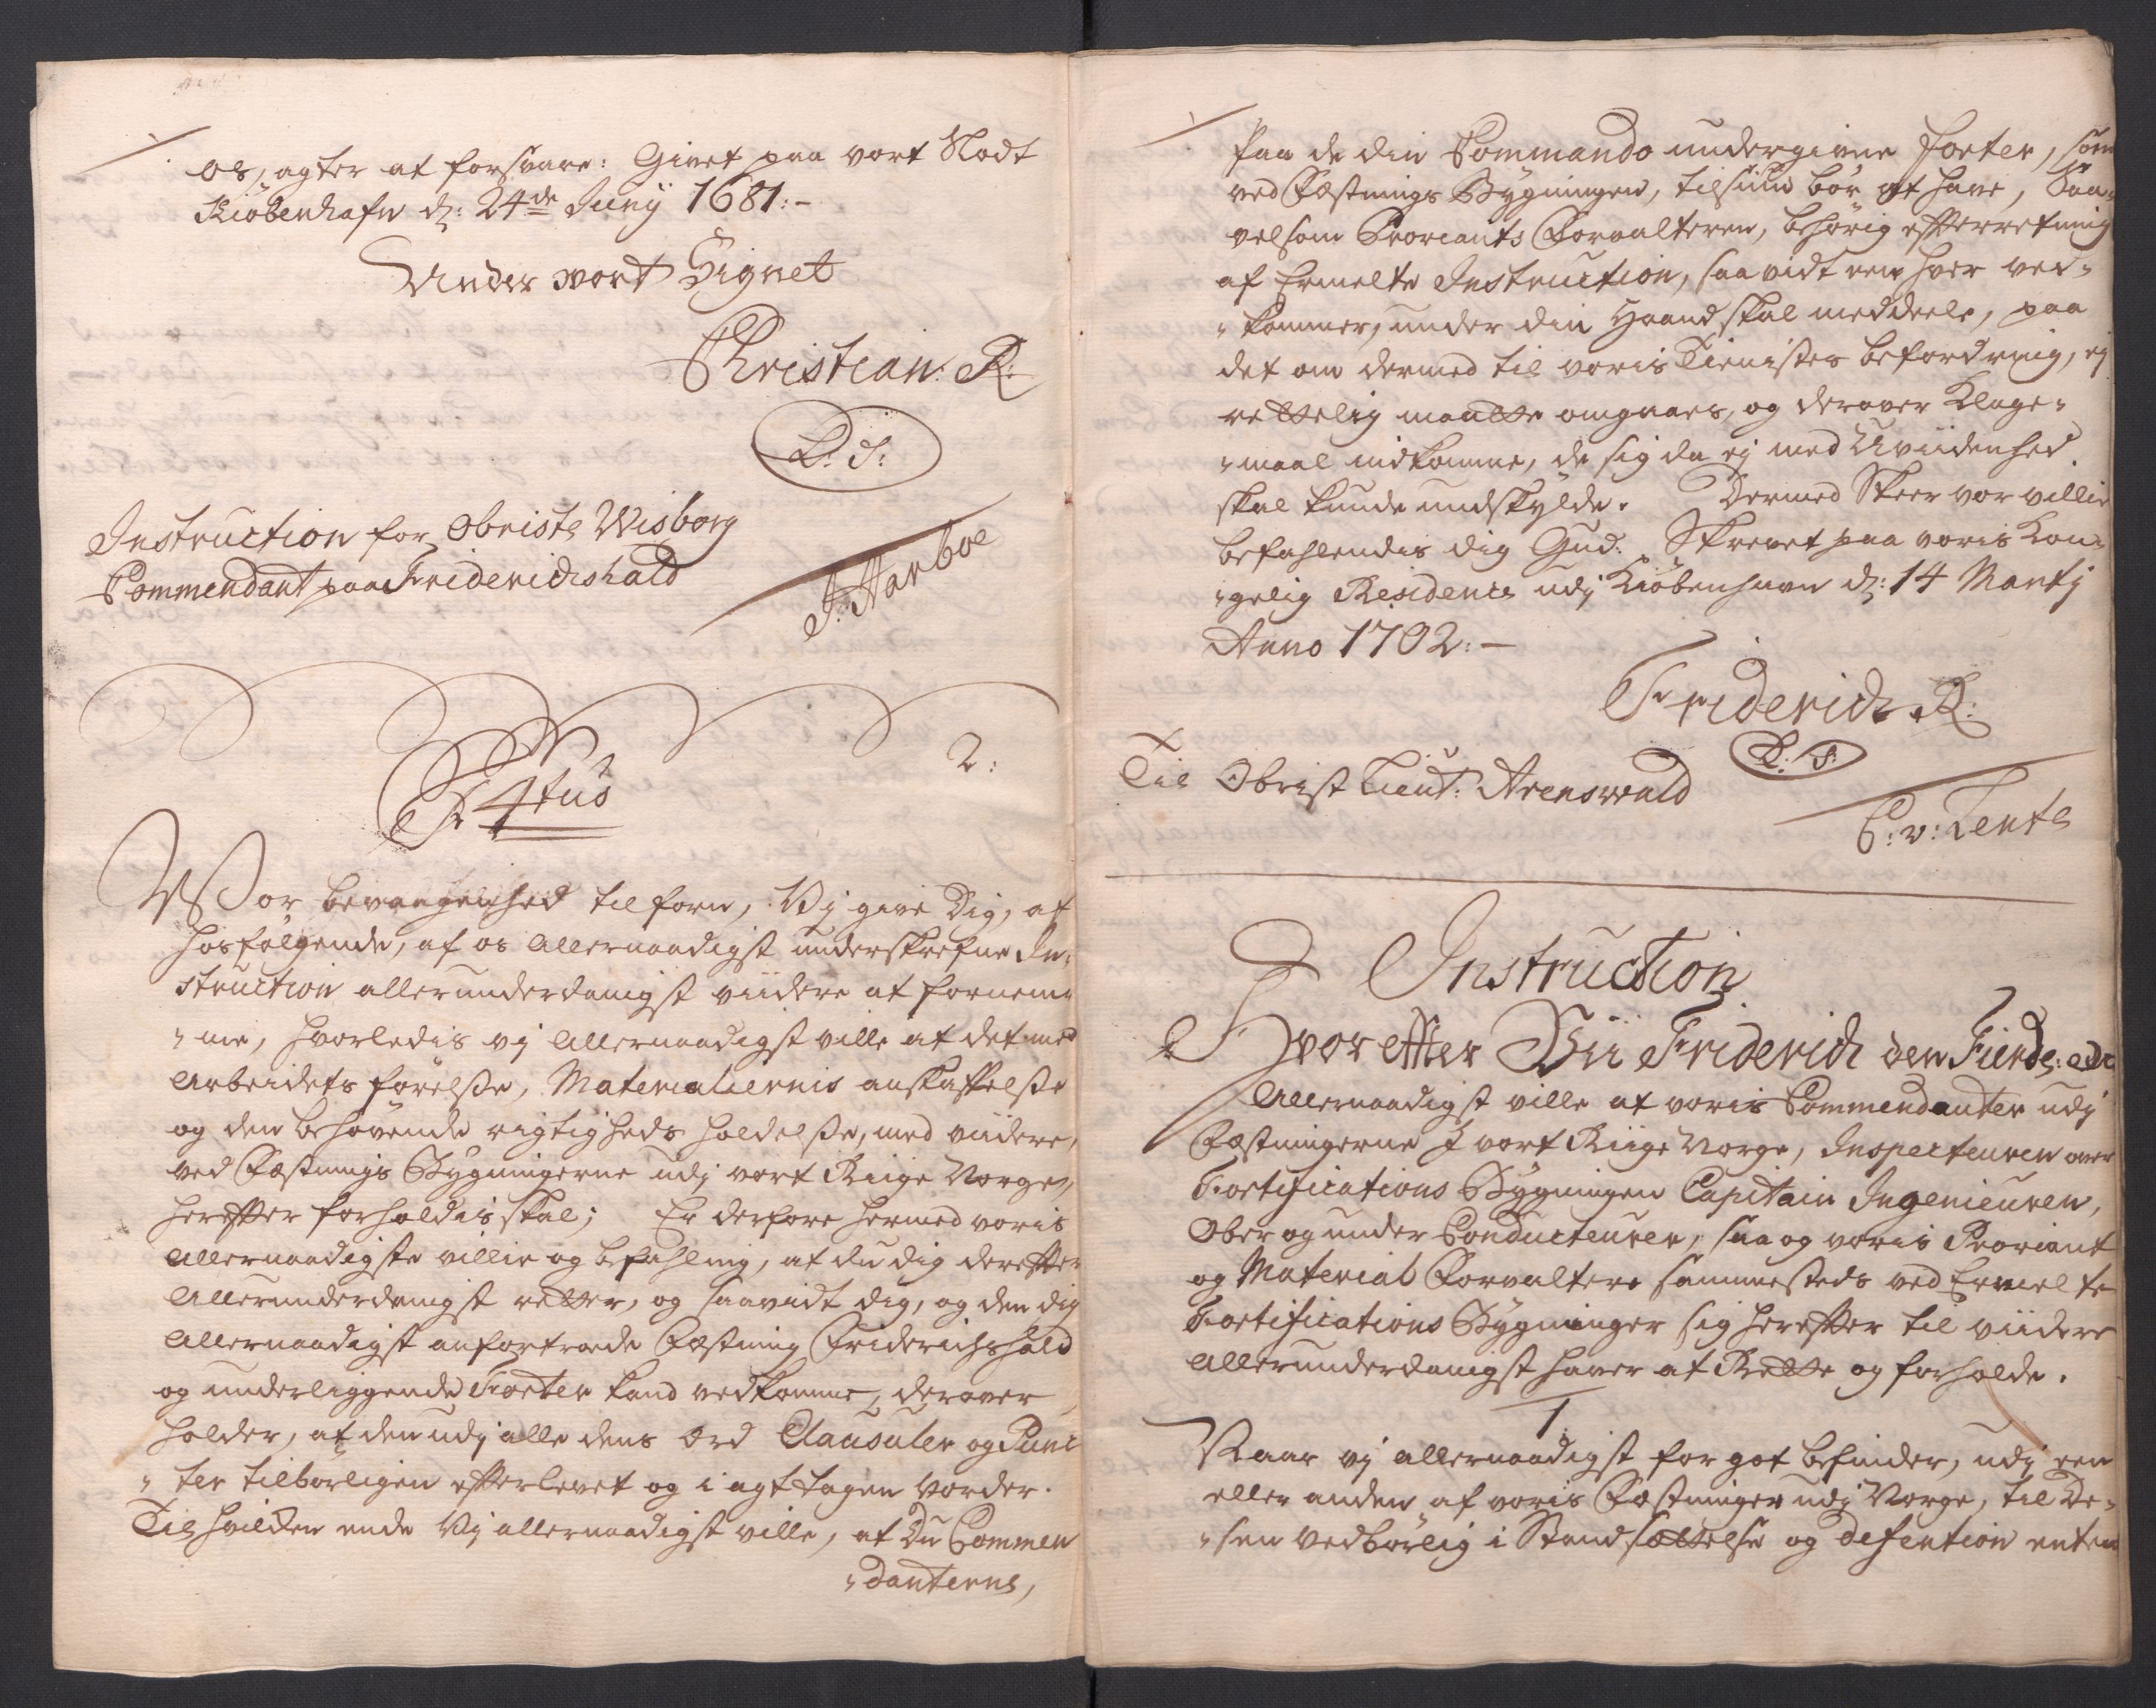 os, agter at forsvare: Givet paa vort Slodt
Kiöbenhafn d: 24de Junij 1681:-
Under vort Signet
Christian: R:
L: S:
Instruction for Obriste Wisborg
Commendant paa Friderichshald
J: Harboe
2:
Fr 4tus
Vor bevaagenhed tilforn, Vij give Dig, af
hosfölgende, af os allernaadigst underskrefne In-
struction allerunderdanigst viidere at fornem-
-me, hvorledis vj allernaadigst ville at det med
arbeidets förelsse, Materialiernis anskaffelsse
og den behövende rigtigheds holdelsse, med viidere,
ved Fæstnings Bÿgningerne udj vort Riige Norge,
herefter forholdis skal; Er derfore hermed voris
allernaadigste villie og befahling, at du dig derefter
allerunderdanigst retter, og saavidt dig, og den dig
allernaadigst anfortroede Fæstning Friderichshald
og underliggende Forter kand vedkomme, derover
holder, at den udj alle dens Ord Clausuler og Punc
-ter tilbörligen efterlevet og i agt tagen vorder.
Til hvilcken ende Vj allernaadigst ville, at Du Commen
-danterne,
Paa de din Commando undergivne Forter, som
ved Fæstnings Bÿgningen, tilsiun bör at have, Saa-
velsom Proviants Forvalteren, behörig efterretning
af Ermelte Instruction, saa vidt een hver ved-
-kommer, under din Haand skal meddeele, paa
det om dermed til voris Tienistes befordring, ej
rettelig maatte omgaaes, og derover Klage-
-maal indkomme, de sig da ej med Uviidenhed
skal kunde undskÿlde. Dermed Skeer vor villie
befahlendis dig Gud. Skrevet paa voris Kon-
-gelig Residence udj Kiöbenhavn d: 14 Martj
Anno 1702:-
Friderich R:
L: S:
Til Obrist Lieut: Arenswald
C: v: Lente
Instruction
Hvor efter Vii Friderich den Fierde: etc
Allernaadigst ville at voris Commendanter udj
Fæstningerne I vort Riige Norge, Inspecteuren over
Fortifications Bÿgningen Capitain Ingenieuren,
Ober og under Conducteurer, saa og voris Proviant
og Material Forvaltere sammesteds ved Ermelte
Fortifications Bÿgninger sig herefter til viidere
allerunderdanigst haver at Rette og forholde.
1
Naar vj allernaadigst for got befinder, udj een
eller anden af voris Fæstninger udj Norge, til De-
-sen vedbörlig i Stand sættelse og defention enten